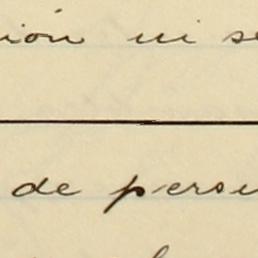 ión ni se
de perso